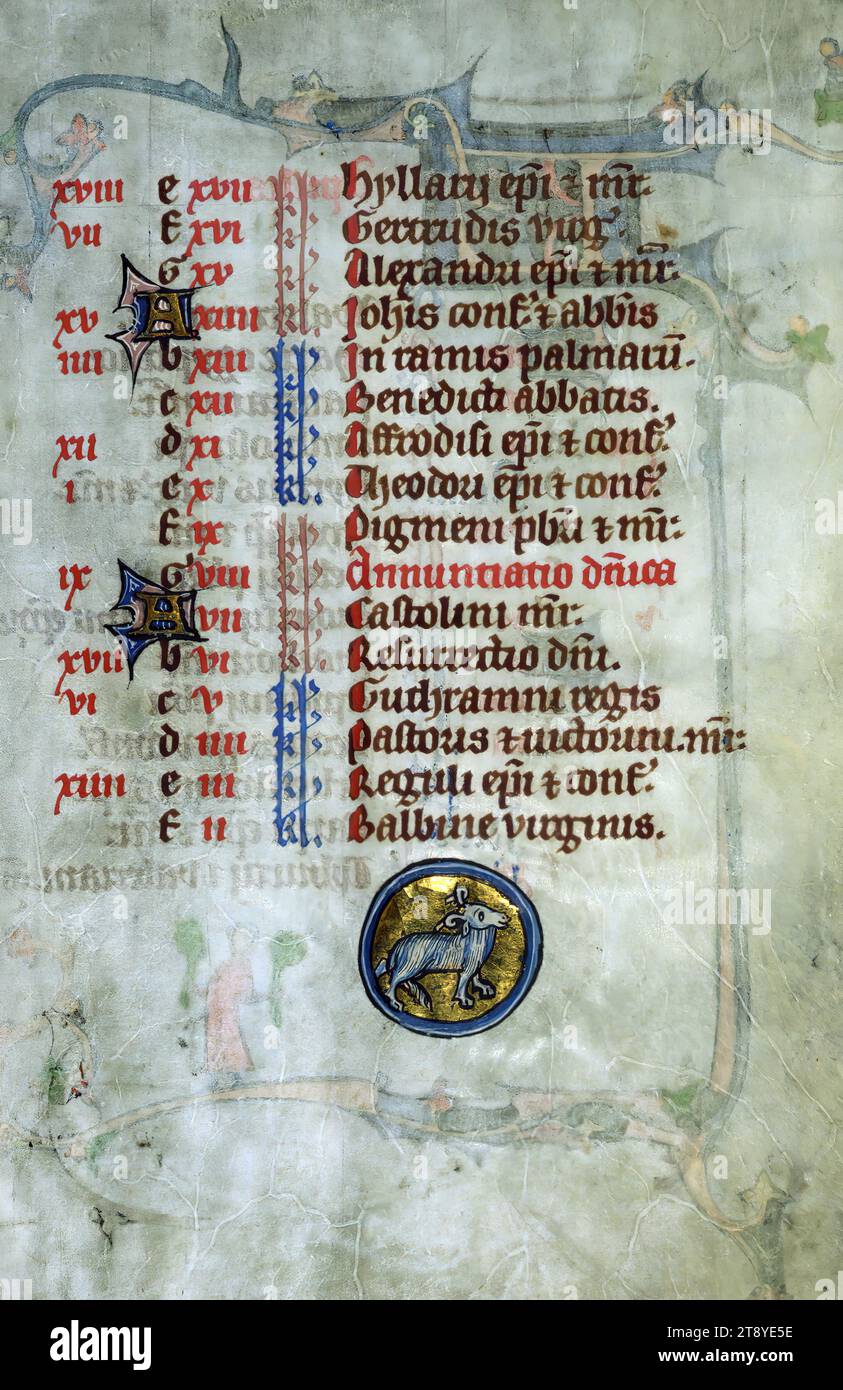 xviii e xvii kl Hyllarij ep̄i ⁊ mr̄.
vii f xvi kl Gertrudis virg̾.
G xv kl Alexandri ep̄i ⁊ mr̄.
xv A xiiii kl Joh̄is conf̾ ⁊ abb̄is
iiii b xiii kl In ramis palmarū.
c xii kl Benedicti abbatis.
xii d xi kl Affrodisi ep̄i ⁊ conf̾.
i e x kl. Theodori ep̄i ⁊ conf̾.
f ix kl Pigmeni pb̄ri ⁊ mr̄.
ix G viii kl Annuntiatio dn̄ica
A vii kl Castolini mr̄.
xvii b vi kl Resurrectio dn̄i.
vi c v kl Guthramni regis
d iiii kl Pastoris ⁊ uictorini. mr̄.
xiiii e iii kl Reguli ep̄i ⁊ conf̾.
f ii kl. Balbine virginis.
alamy
Image ID: 2T8YE5E
www.alamy.com